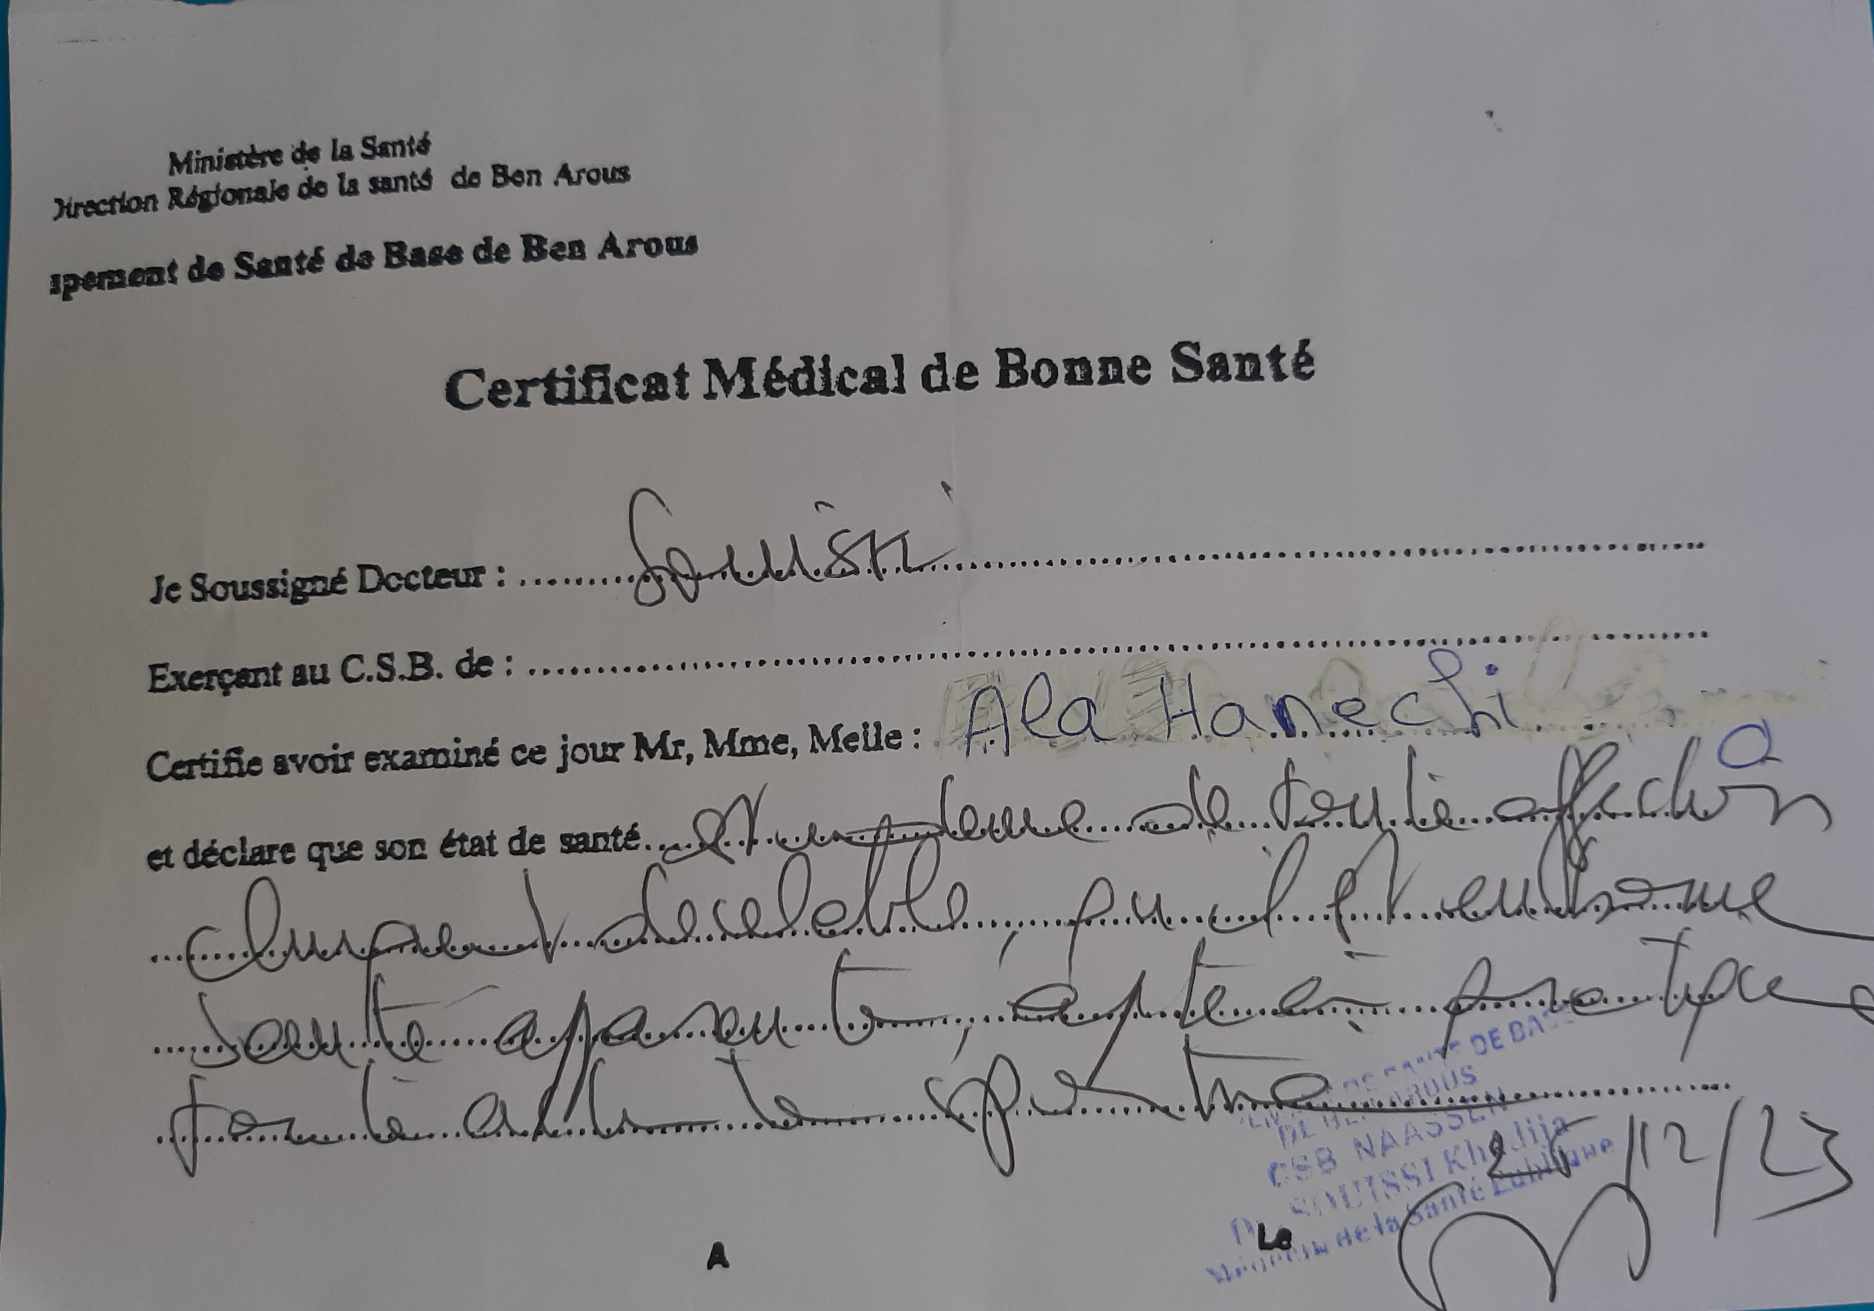 Ministère de la Santé
Direction Régionale de la santé de Ben Arous
pement de Santé de Base de Ben Arous
Certificat Médical de Bonne Santé
Je Soussigné Docteur : Souissi
Exerçant au C.S.B. de :
Certifie avoir examiné ce jour Mr, Mme, Melle : Ala Hanechi
et déclare que son état de santé est indemne de toute affection
cliniquement decelable, qu'il est en bonne
santé apparente, apte à pratiquer
toute activité sportive
DE SANTE DE BASE
DE BEN AROUS
CSB NAASSEN
25/12/23
Dr SOUISSI Khedija
Médecin de la Santé Publique
A Le